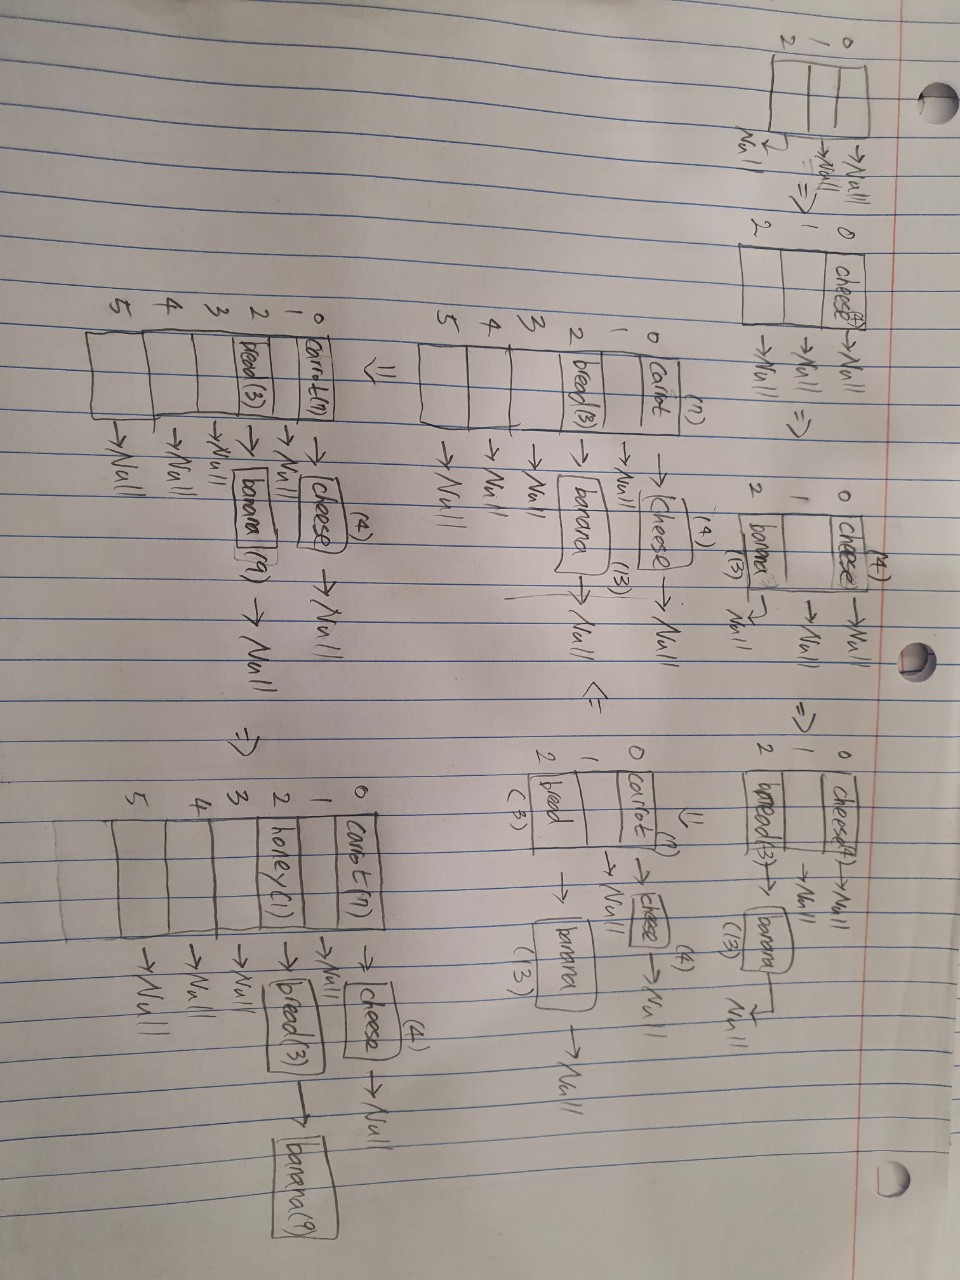 0 →Null
1 →Null
2 → Null
=>
0 cheese(4) →Null
1 →Null
2 →Null
=>
0 cheese (4) →Null
1 →Null
2 banana (13) → Null
=>
0 cheese(4) →Null
1 →Null
2 bread(3) → banana (13) → Null
=>
0 carrot (7) → cheese (4) → Null
1 → Null
2 bread (3) → banana (13) → Null
<=
0 carrot (7) → cheese (4) → Null
1 → Null
2 bread(3) → banana (13) → Null
3 → Null
4 → Null
5 → Null
=>
0 carrot(7) → cheese (4) → Null
1 → Null
2 bread(3) → banana (9) → Null
3 → Null
4 → Null
5 → Null
=>
0 carrot(7) → cheese (4) → Null
1 → Null
2 honey(1) → bread(3) → banana(9)
3 → Null
4 → Null
5 → Null